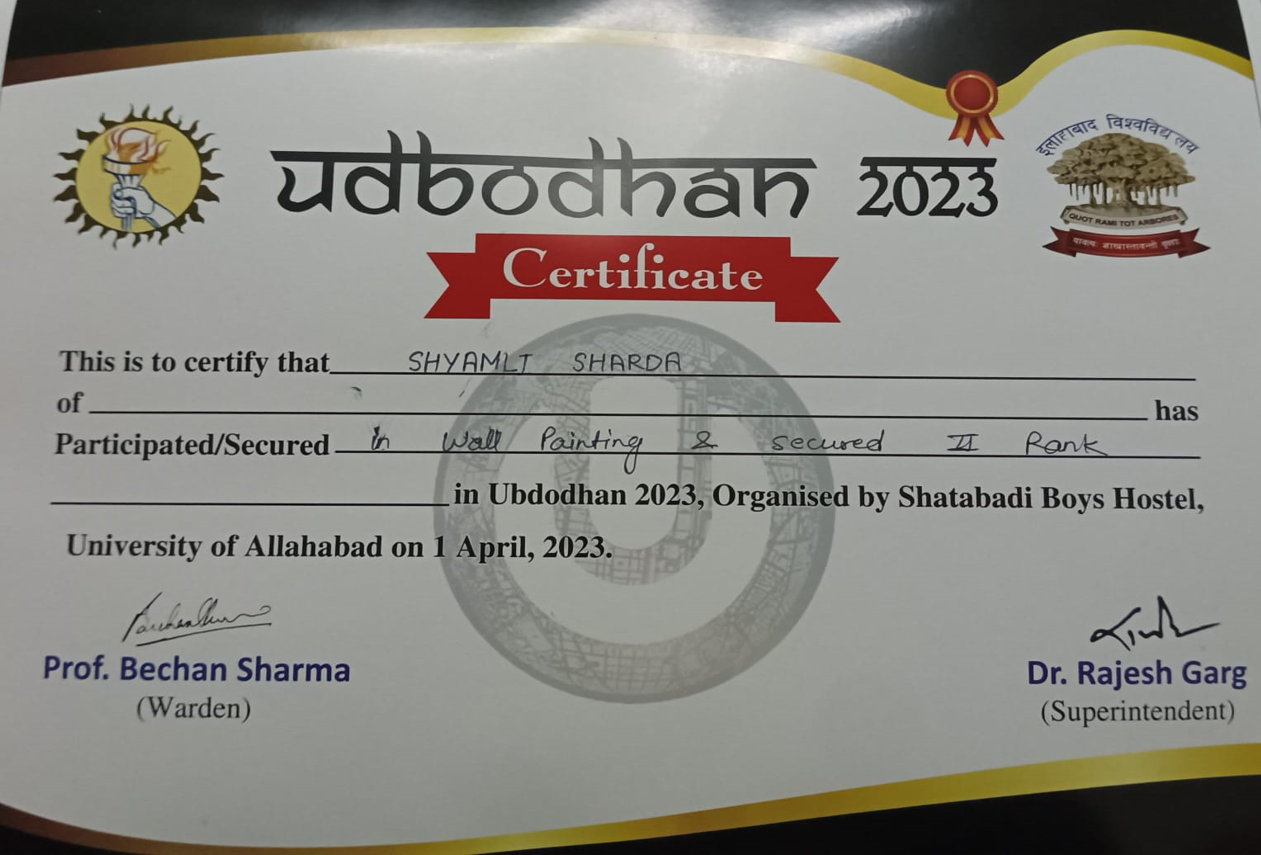 udbodhan 2023
इलाहाबाद विश्वविद्यालय
QUOT RAMI TOT ARBORES
Certificate
This is to certify that SHYAMLI SHARDA
of has
Participated/Secured in Wall Painting & secured II Rank
in Ubdodhan 2023, Organised by Shatabadi Boys Hostel,
University of Allahabad on 1 April, 2023.
Prof. Bechan Sharma
(Warden)
Dr. Rajesh Garg
(Superintendent)